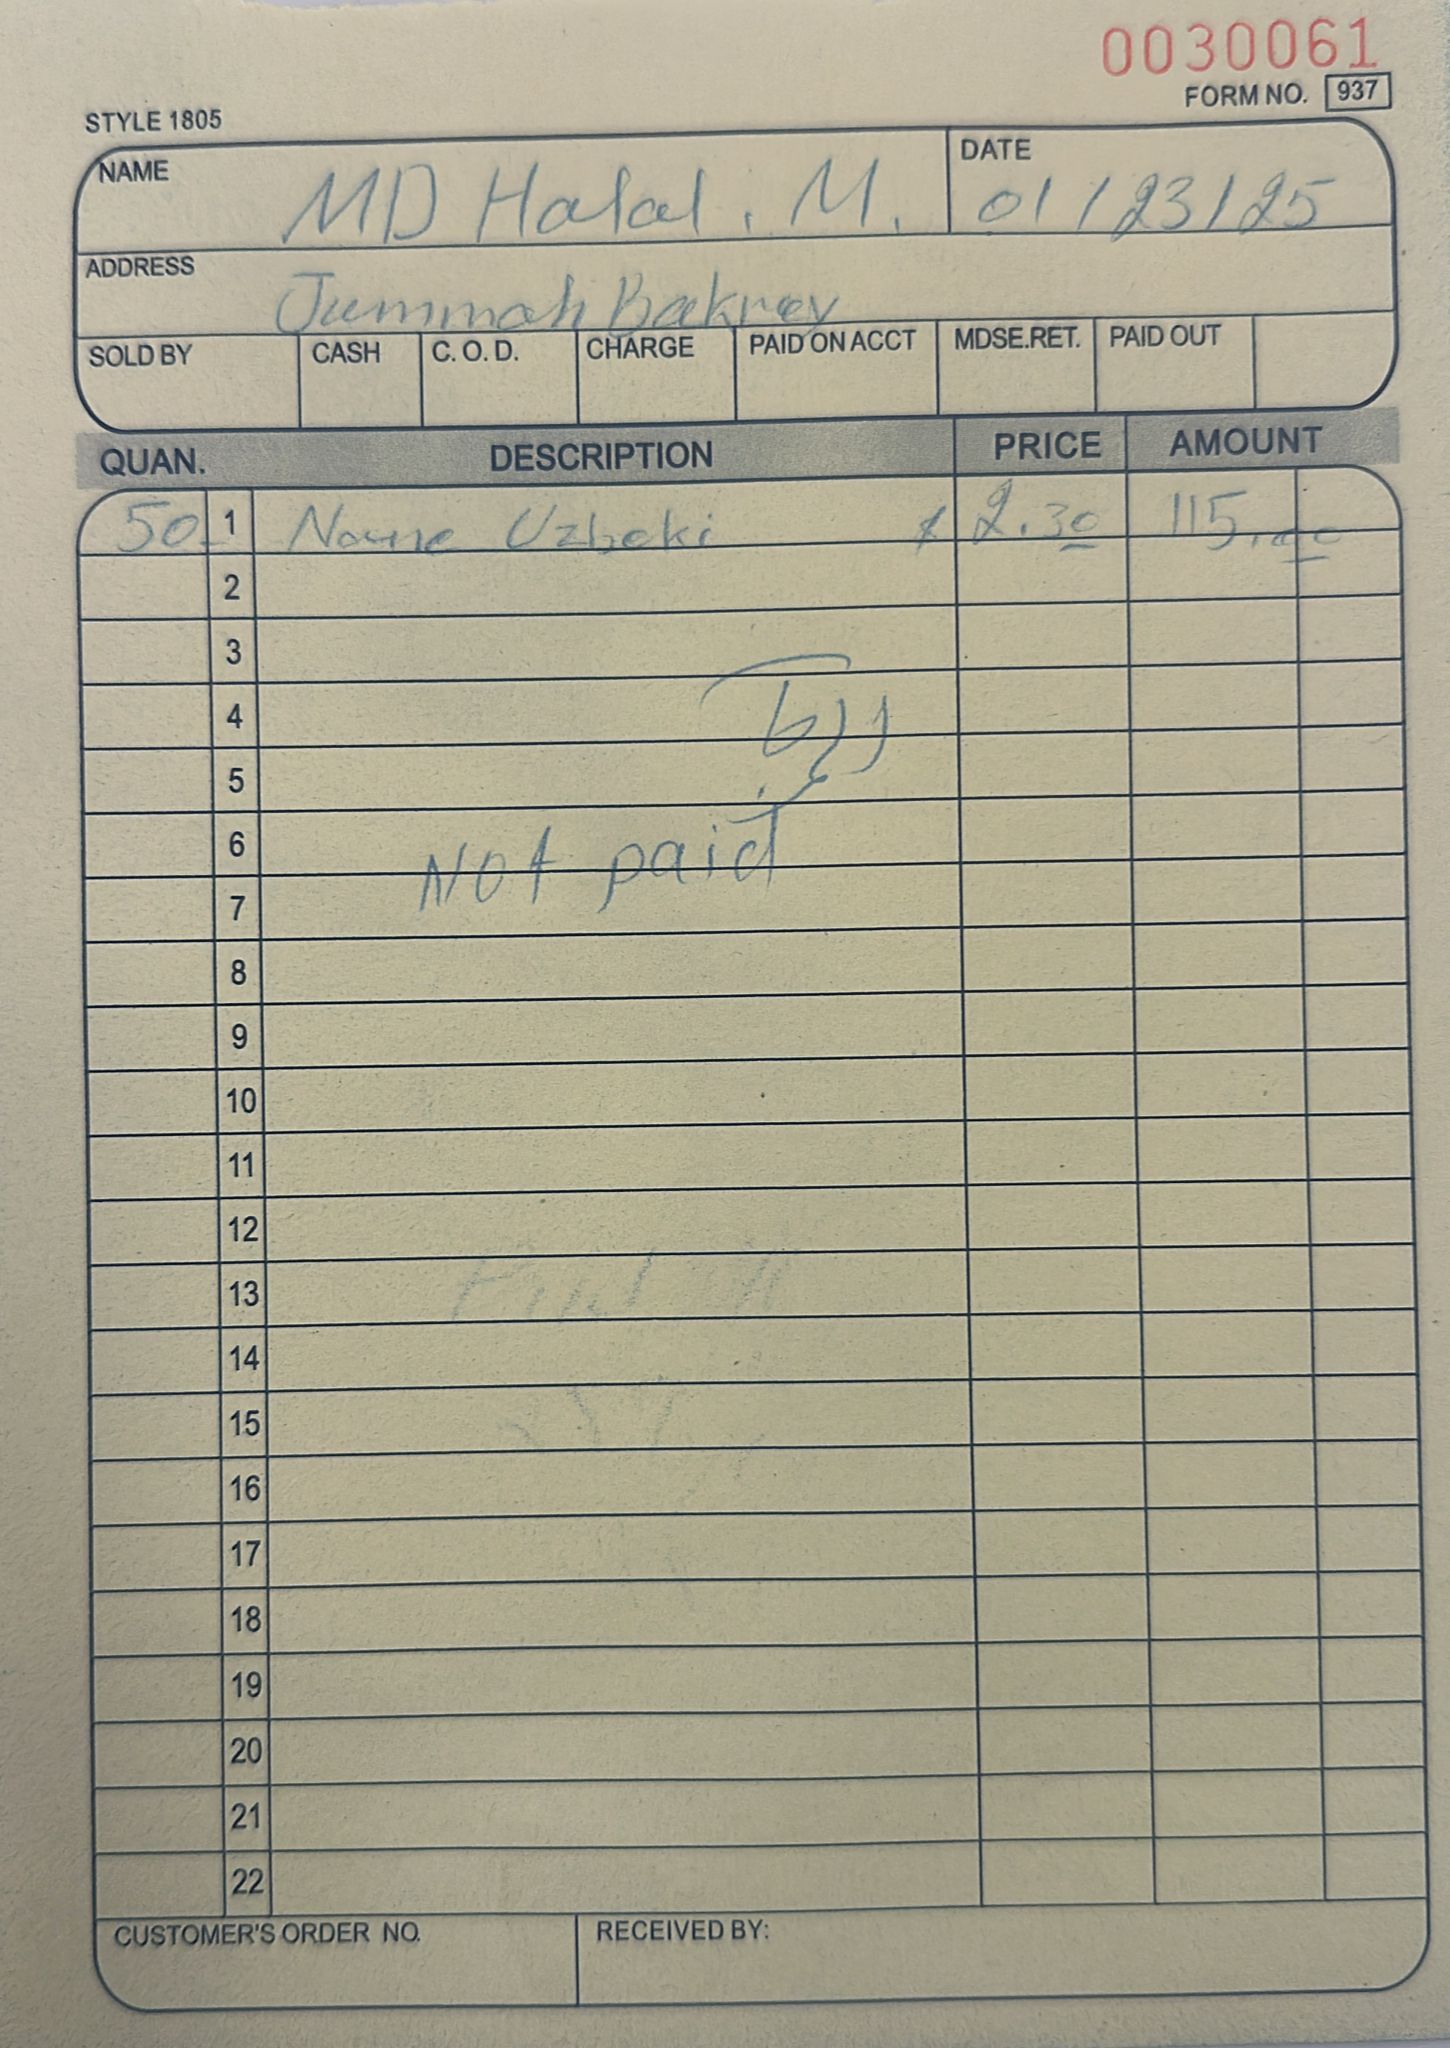 0030061
FORM NO. 937
STYLE 1805
NAME MD Halal. M. DATE 01/23/25
ADDRESS Jummah Bakrey
SOLD BY CASH C. O. D. CHARGE PAID ON ACCT MDSE.RET. PAID OUT
QUAN. DESCRIPTION PRICE AMOUNT
50 1 Noune Uzbeki $ 2.30 115.00
2
3
4
5
6 Not paid
7
8
9
10
11
12
13
14
15
16
17
18
19
20
21
22
CUSTOMER'S ORDER NO. RECEIVED BY: